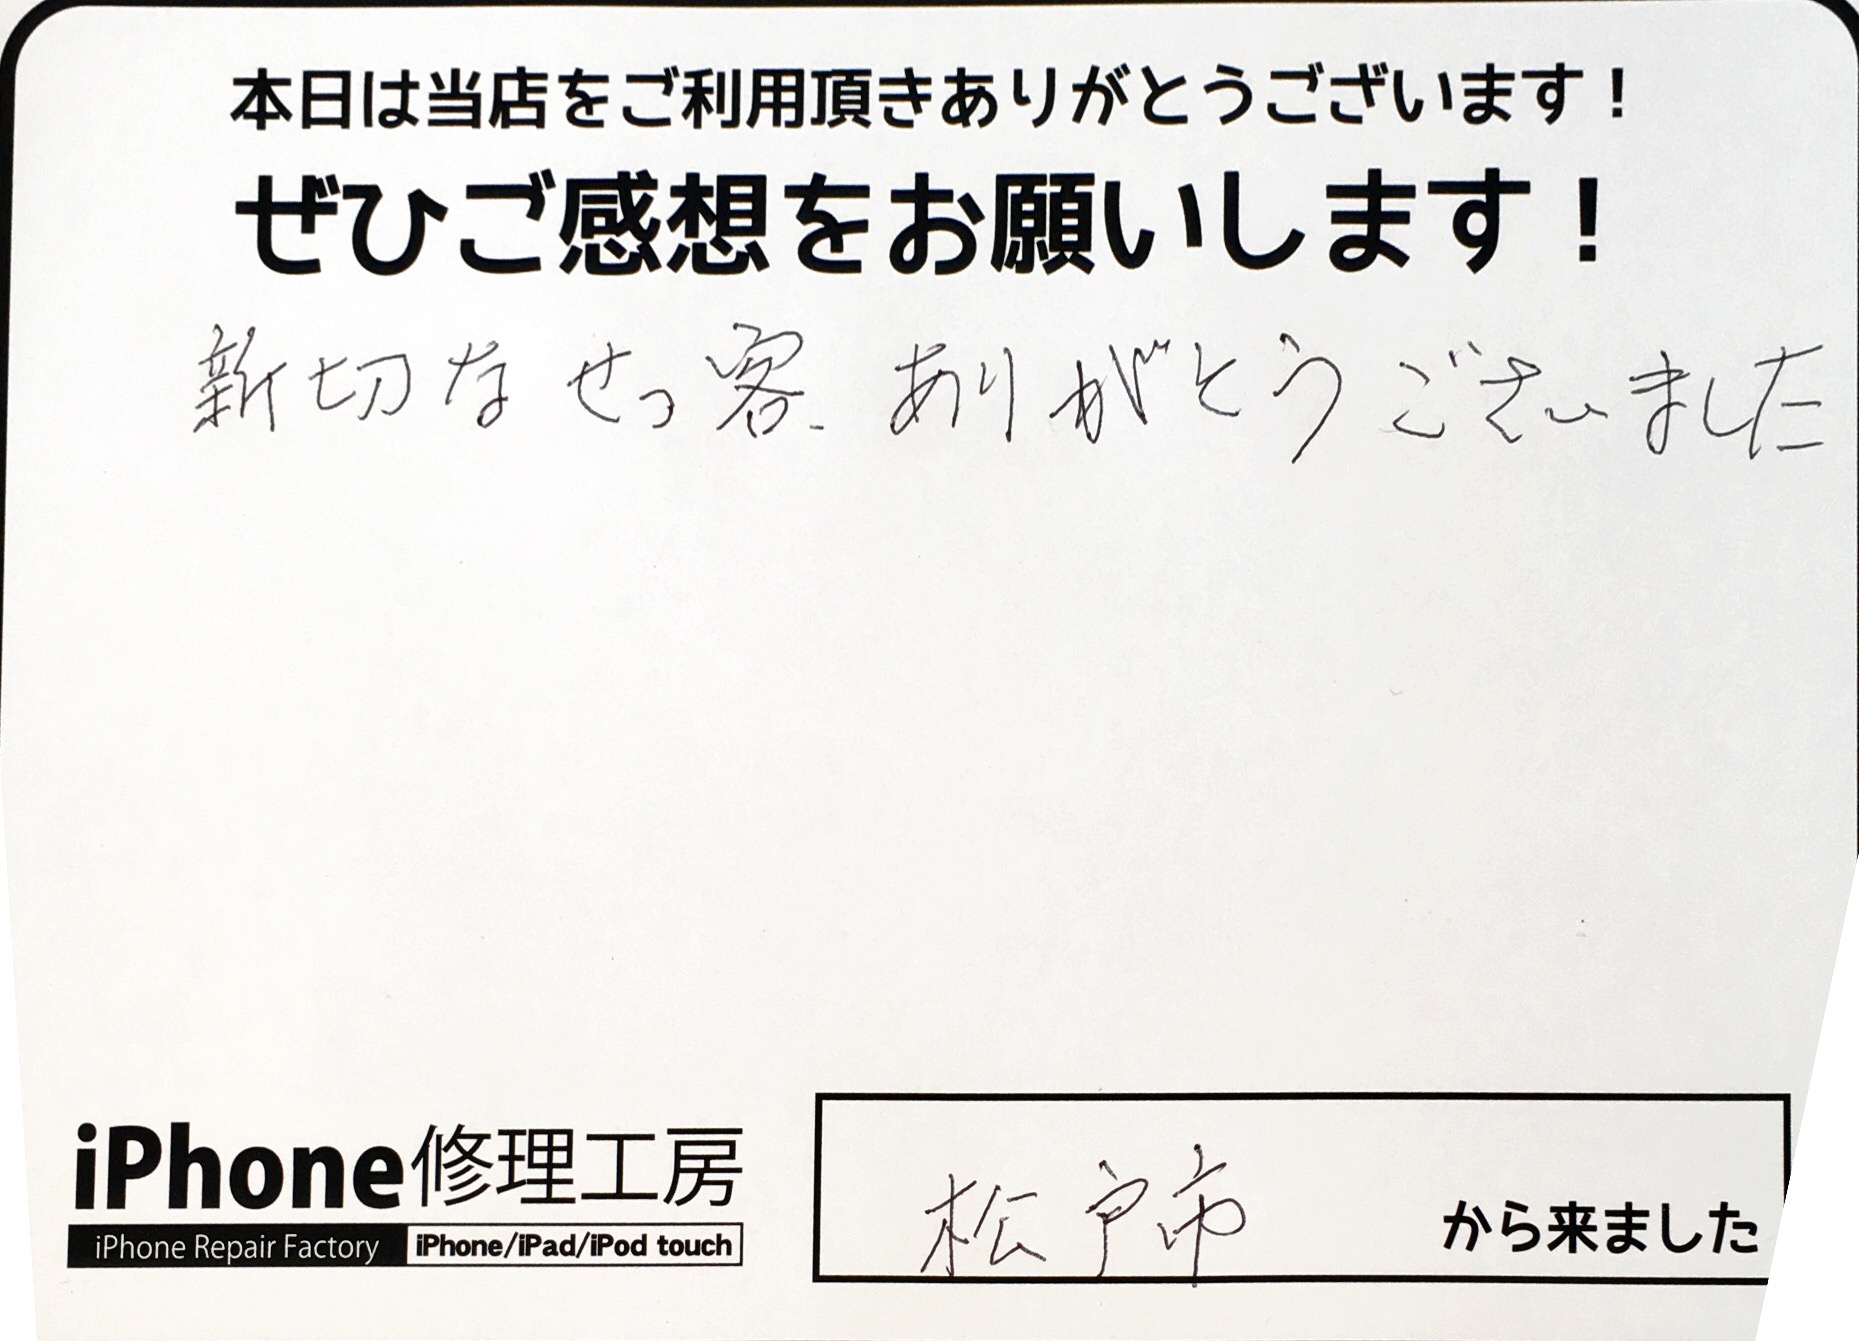 本日は当店をご利用頂きありがとうございます！
ぜひご感想をお願いします！
新切なせつ客、ありがとうございました
iPhone修理工房
iPhone Repair Factory iPhone/iPad/iPod touch
松戸市 から来ました